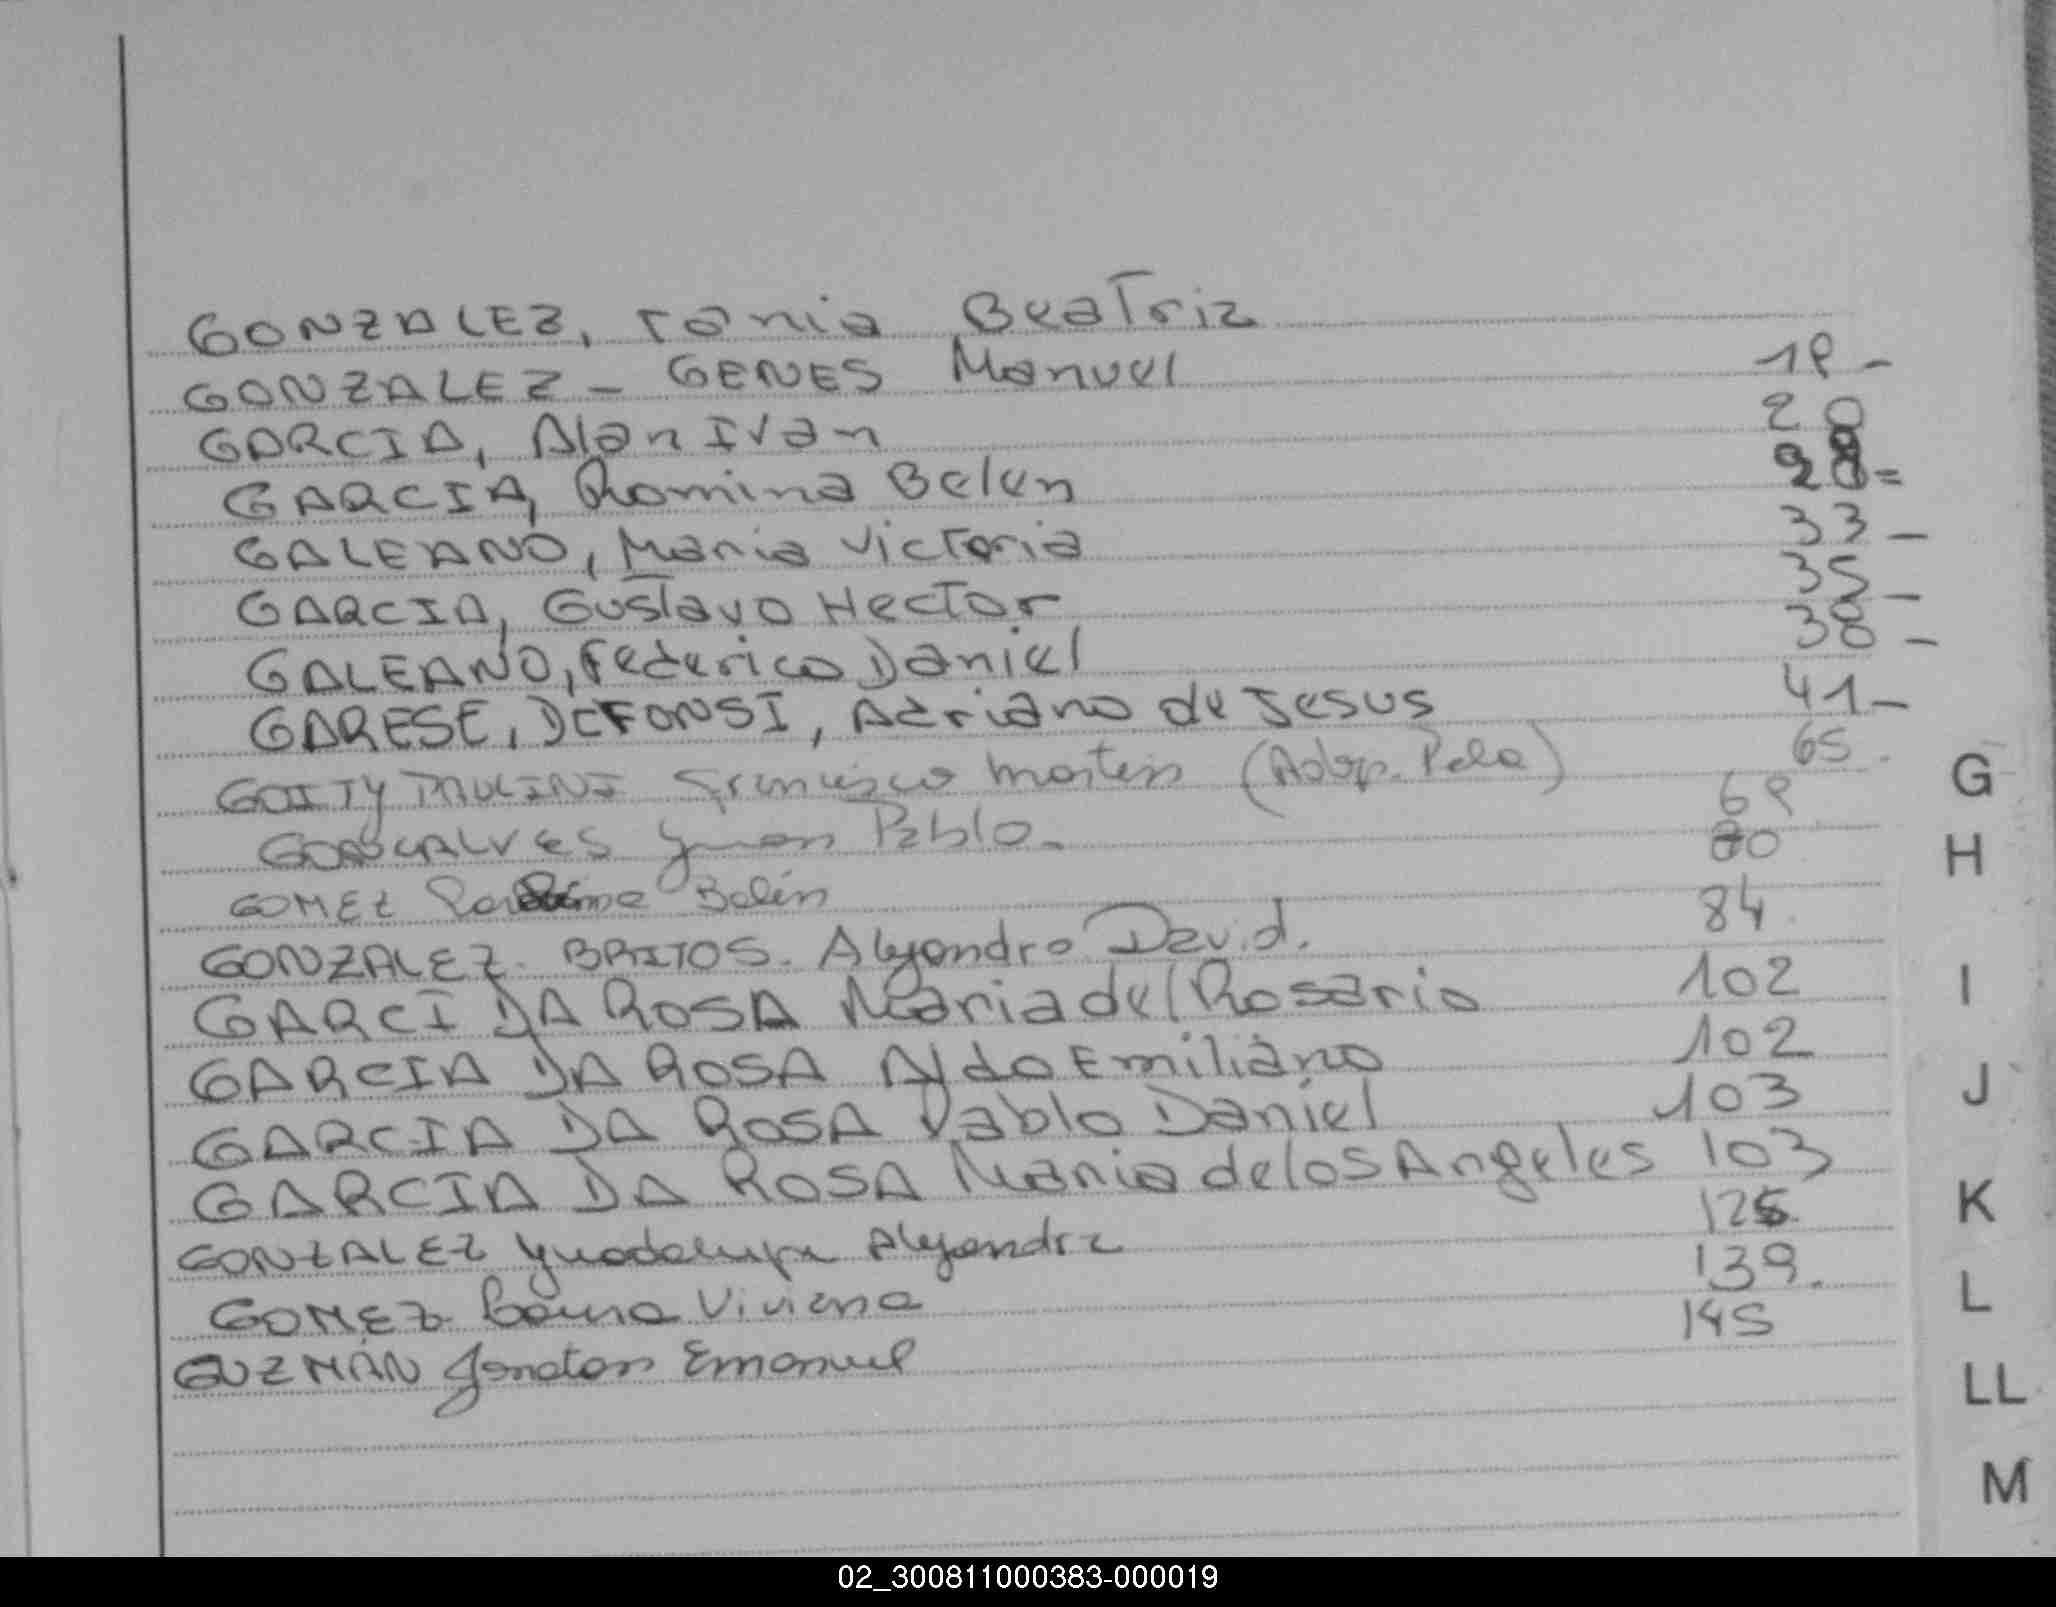 GONZALEZ, Tania Beatriz
GONZALEZ - GENES Manuel 19 -
GARCIA, Alan Ivan 20
GARCIA, Romina Belen 28=
GALEANO, Maria Victoria 33 -
GARCIA, Gustavo Hector 35 -
GALEANO, Federico Daniel 38 -
GARESE, DEFONSI, Adriano de Jesus 41 -
GOITY PAULINI Francisco Martin (Adop. Pela) 65.
GONCALVES Juan Pablo. 69
GOMEZ Belén 80
GONZALEZ. BRITOS. Alejandro David. 84.
GARCI DA ROSA Maria del Rosario 102
GARCIA DA ROSA Aldo Emiliano 102
GARCIA DA ROSA Pablo Daniel 103
GARCIA DA ROSA Maria de los Angeles 103
GONZALEZ Guadalupe Alejandra 126.
GOMEZ Viviana 139.
GUZMÁN Jonatan Emanuel 145
G
H
I
J
K
L
LL
M
02_300811000383-000019